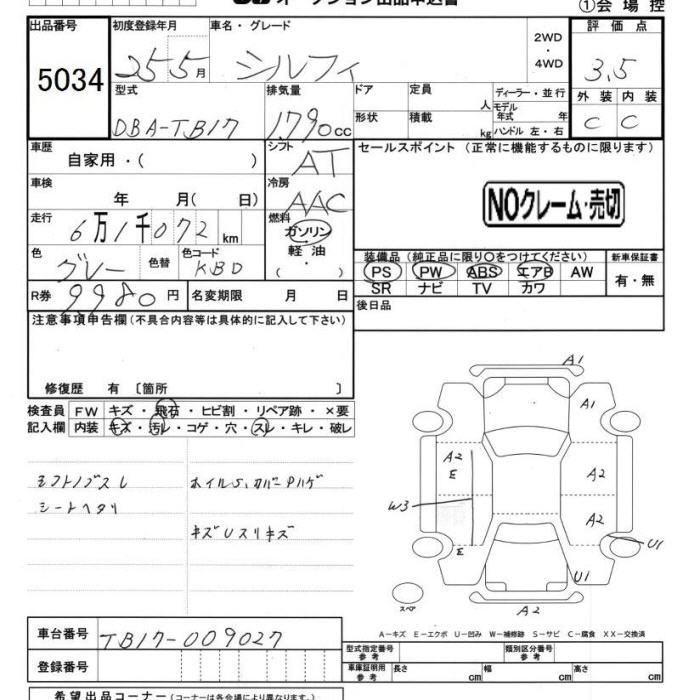 オークション出品申込書
①会場控
出品番号 初度登録年月 車名・グレード 2WD 評価点
5034 25 5月 シルフィ ・4WD 3.5
型式 排気量 ドア 定員 人 ディーラー・並行 外装 内装
DBA-TB17 1790cc 形状 積載 kg モデル年式 年 C C
ハンドル 左・右
車歴 自家用・( ) シフト AT セールスポイント (正常に機能するものに限ります)
車検 年 月( 日) 冷房 AAC NOクレーム・売切
走行 6万1千072km 燃料 ガソリン
軽油
( ・ )
色 グレー 色替 色コード KBD 装備品(純正品に限り○をつけてください) 新車保証書
PS PW ABS エアB AW 有・無
R券 9980円 名変期限 月 日 SR ナビ TV カワ
注意事項申告欄(不具合内容等は具体的に記入して下さい) 後日品
修復歴 有 〔箇所 〕
検査員 FW キズ・飛石・ヒビ割・リペア跡・×要
記入欄 内装 キズ・汚レ・コゲ・穴・スレ・キレ・破レ
シフトノブスレ
シートヘタリ
キズUスリキズ
A1
A1
A2 A2
E
W3 A2
E U1
U1
スペア A2
A-キズ E-エクボ U-凹み W-補修跡 S-サビ C-腐食 XX-交換済
車台番号 TB17-009027
型式指定番号 参考 類別区分番号 参考
登録番号 車庫証明用 参考 長さ cm 幅 cm 高さ cm
希望出品コーナー(コーナーは各会場により異なります。)